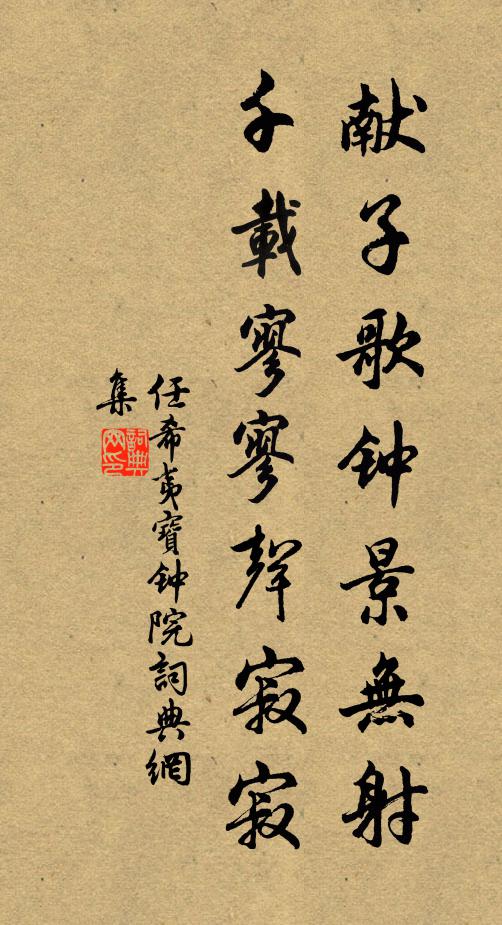 献子歌钟景無射
千載寥寥聲寂寂
任希夷寶钟院詞典網
集
詞典網印